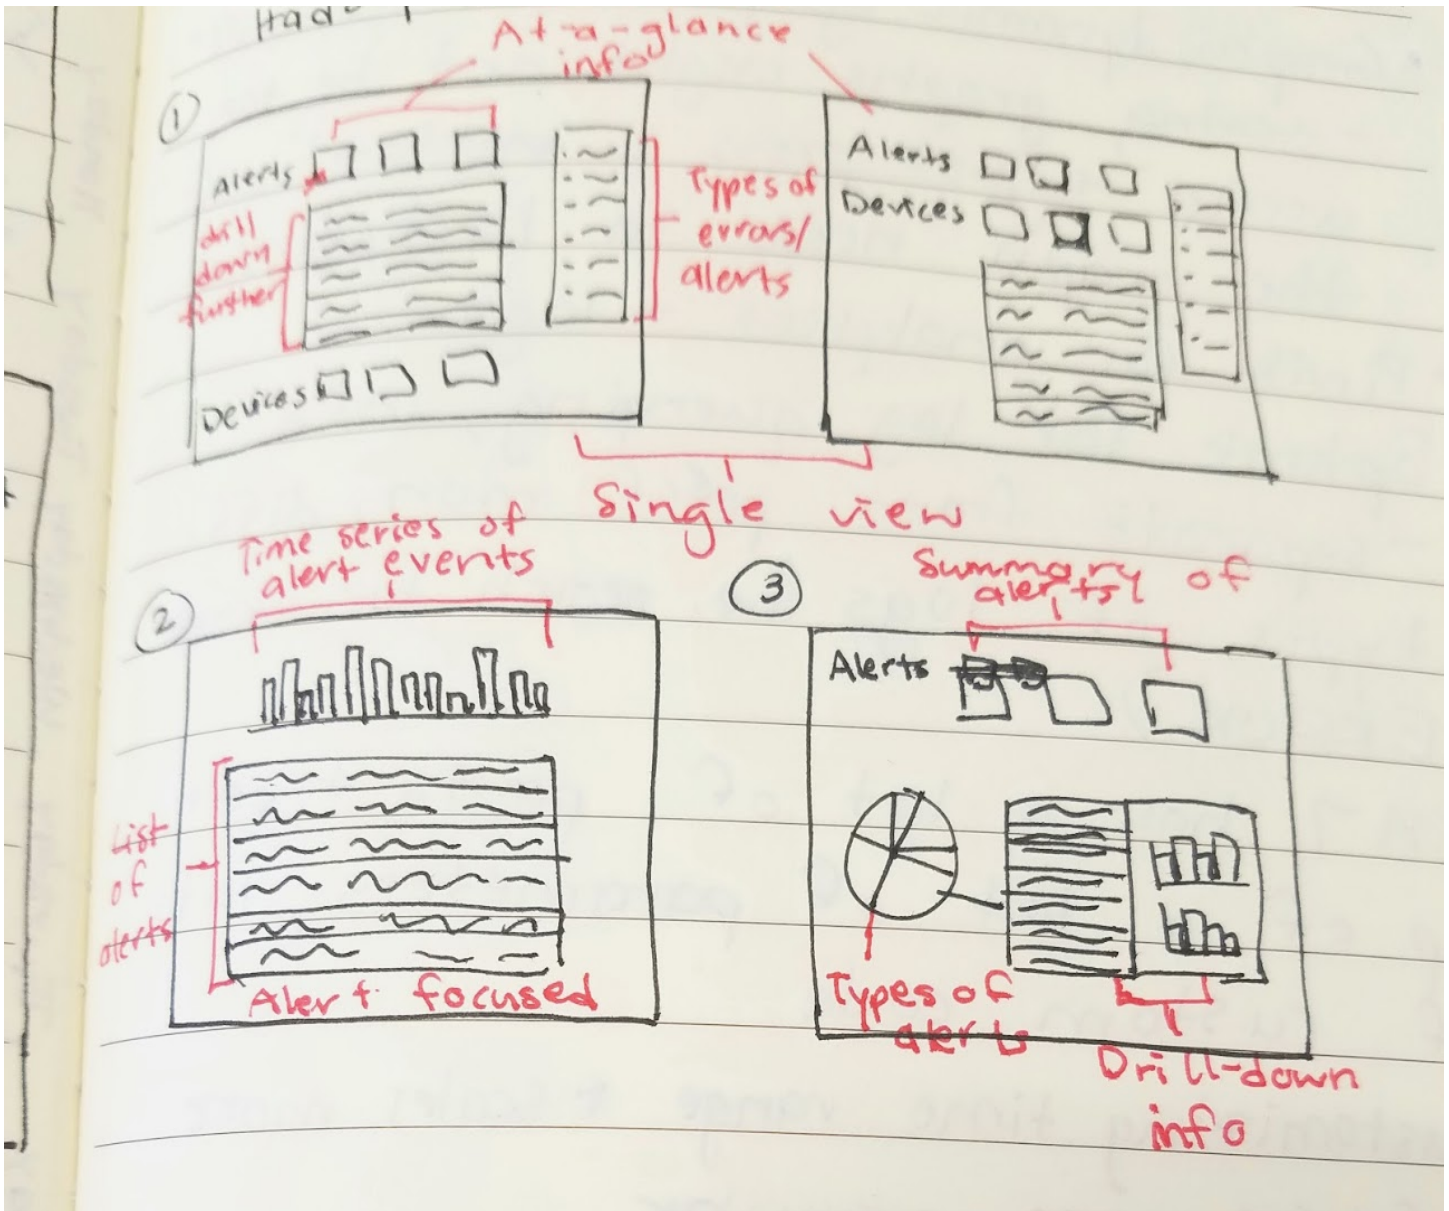 At-a-glance
info
①
Alerts
drill
down
further
Devices
Types of
errors/
alerts
Alerts
Devices
Single view
②
Time series of
alert events
List
of
alerts
Alert focused
③
Summary of
alerts
Alerts
Types of
alerts
Drill-down
info